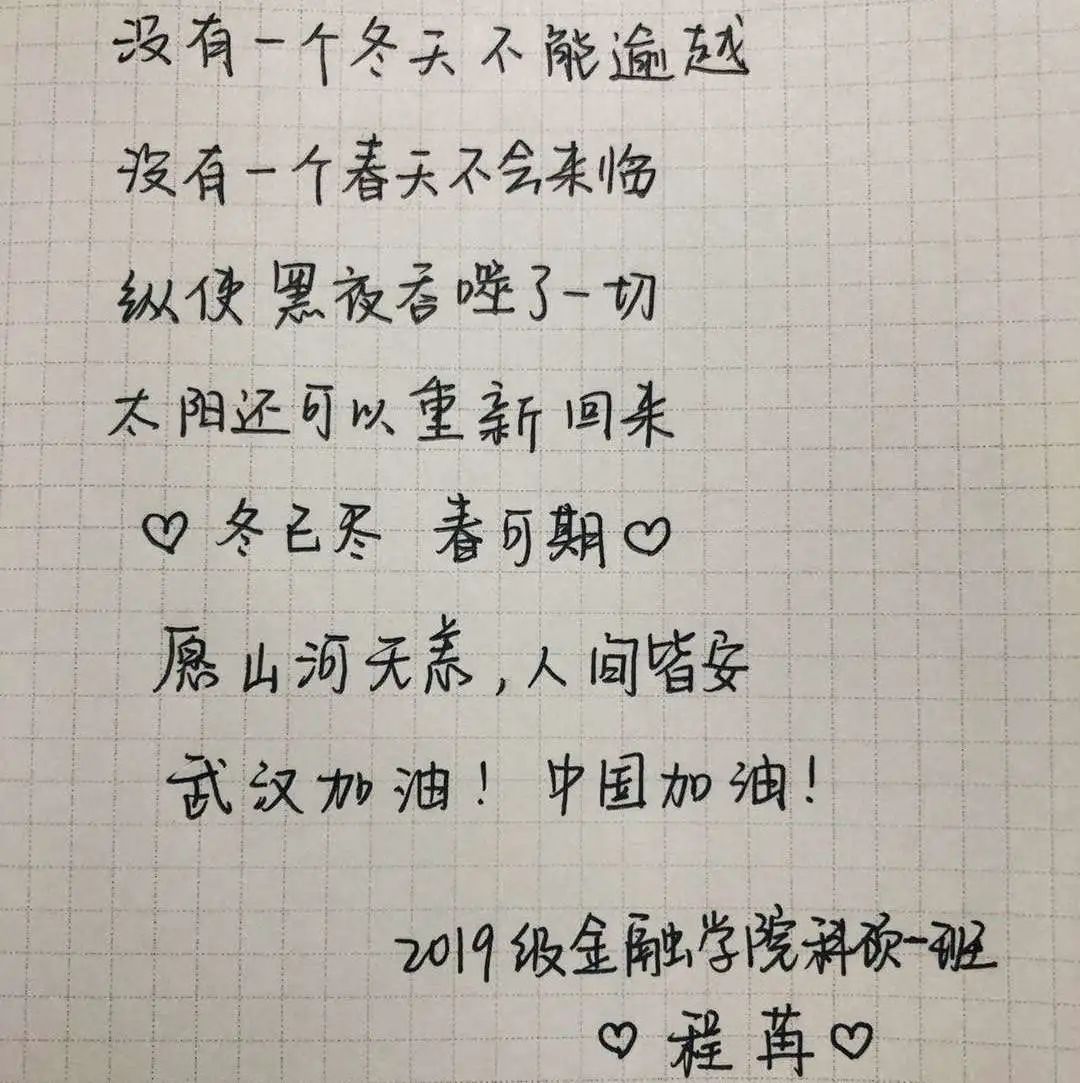 没有一个冬天不能逾越
没有一个春天不会来临
纵使黑夜吞噬了一切
太阳还可以重新回来
♡冬已尽 春可期♡
愿山河无恙,人间皆安
武汉加油! 中国加油!
2019级金融学院科硕一班
♡程苒♡